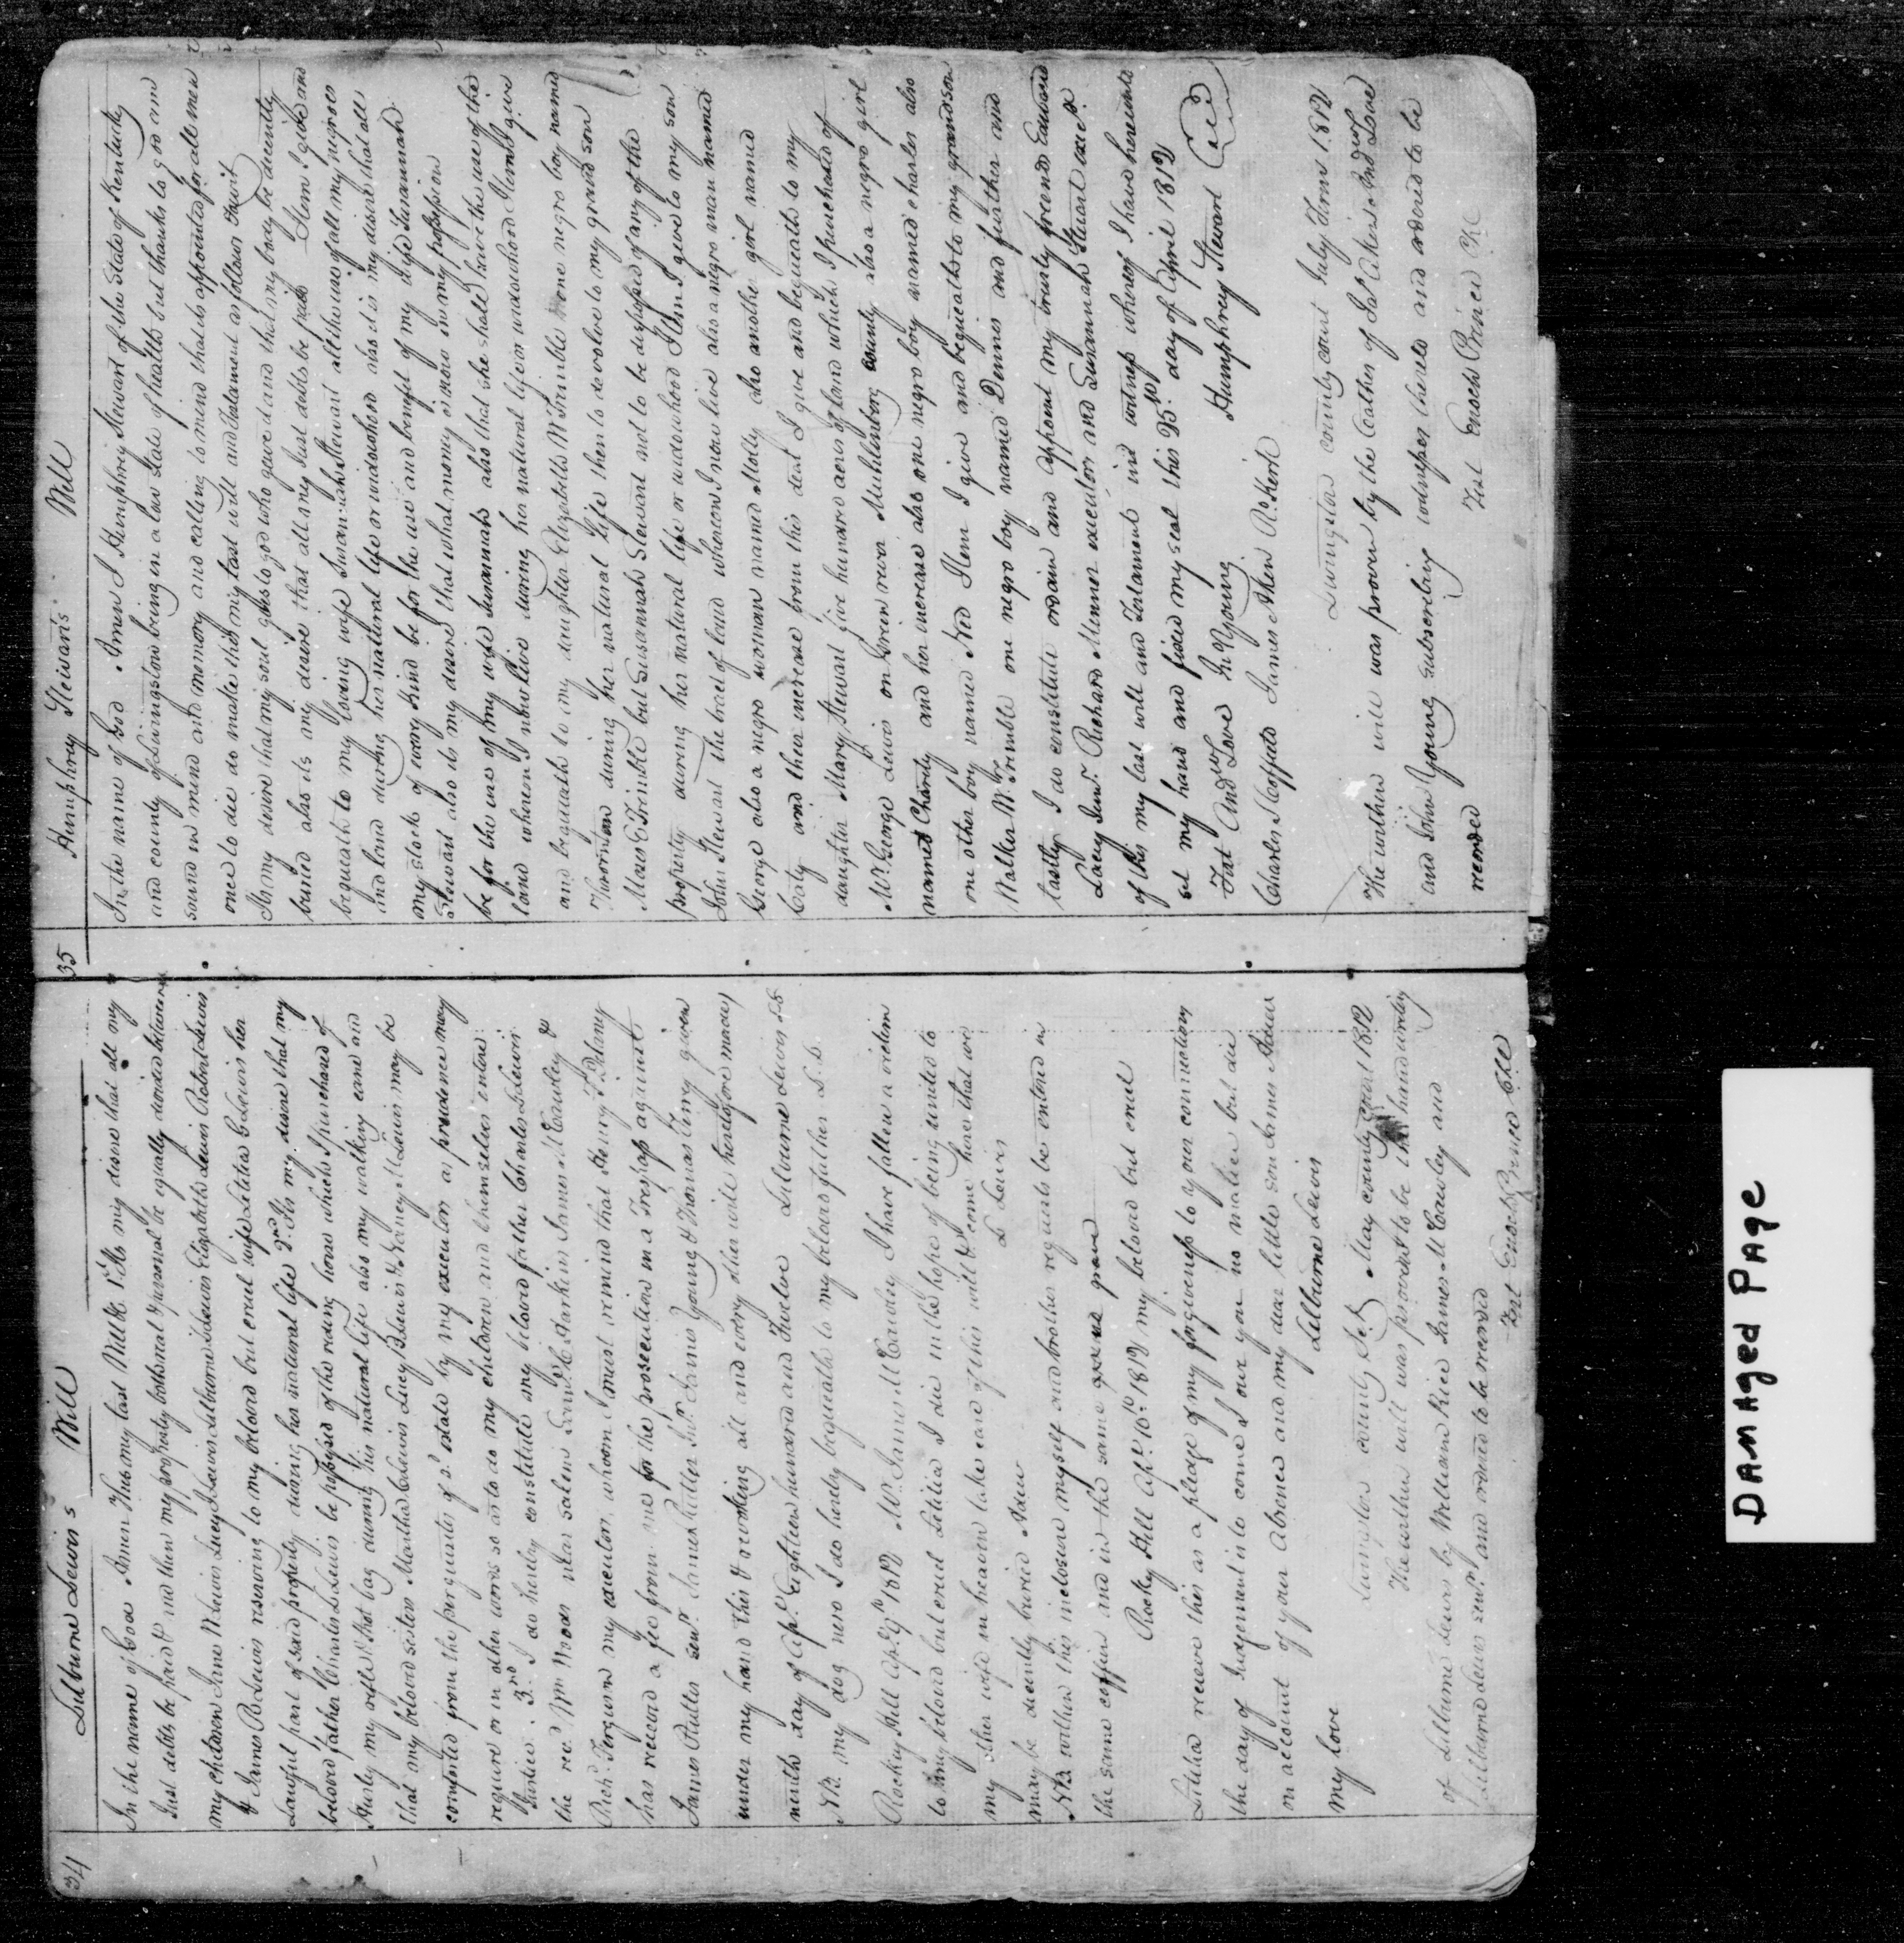 34
Lilburne Lewis's Will
In the name of God Amen This my last Will &c 1st Its my desire that all my
Just debts be paid & and then my property both real & personal be equally divided between
my children Jane W Lewis Lucy J Lewis Lilburne L Lewis Elizabeth Lewis Robert Lewis
& James R Lewis reserving to my beloved but cruel wife Letitia G Lewis her
Lawful part of said property during her natural life 2nd Its my desire that my
beloved father Charles L Lewis be possessed of the riding horse which I purchased of
Hurly my rifle & shot bag during his natural life also my walking cane and
that my beloved sisters Martha C Lewis Lucy B Lewis & Nancy M Lewis may be
comforted from the perquisites of sd estate by my executors as prudence may
require or in other words so as to do my children and themselves entire
Justice. 3rd I do hereby constitute my beloved father Charles L Lewis
the revd Wm Woods near Salem Saml C Harkins James M Cauley &
Richd Ferguson my executors, whom I must remind that Henry F Delany
has received a fee from me for the prosecution in a Trespass against
James Rutter senr James Rutter Junr James Young & Thomas Terry given
under my hand this & revoking all and every other will heretofore made)
ninth day of Apl Eighteen hundred and Twelve Lilburne Lewis LS
NB. my dog nero I do hereby bequeath to my beloved father L. L.
Rocky Hill Apl 9th 1812 Mr James M Cauley I have fallen a victim
to my beloved but cruel Letitia I die in the hope of being united to
my other wife in heaven take care of this will & come here that we
may be decently buried Adieu L Lewis
NB within this inclosure myself and brother requests be entered in
the same coffin and in the same grave
Rocky Hill Apl 10th 1812 my beloved but cruel
Letitia receive this as a pledge of my forgiveness to your connections
the day of Judgement is to come I owe you no malice but die
on account of your absence and my dear little son James Adieu
my love Lilburne Lewis
Livingston county Sct May county court 1812
The within will was proved to be the hand writing
of Lilburne Lewis by William Rice James M Cawley and
Lilburne Lewis senr and ordered to be recorded
Test Enoch Prince Clk
35
Humphrey Stewart's Will
In the name of God Amen I Humphrey Stewart of the State of Kentucky
and county of Livingston being in a low State of health but thanks to god am
sound in mind and memory and calling to mind that its appointed for all men
once to die do make this my last will and Testament as follows Towit
Its my desire that my soul goes to god who gave it and that my body be decently
buried also its my desire that all my Just debts be paid Item I give and
bequeath to my loving wife Susannah Stewart all the use of all my negroes
and land during her natural life or widowhood also it is my desire that all
my stock of every kind be for the use and benefit of my wife Susannah
Stewart also its my desire that what money is now in my possession
be for the use of my wife Susannah also that she shall have the use of the
land whereon I now live during her natural life or widowhood Item I give
and bequeath to my daughter Elizabeth McTrimble one negro boy named
Thornton during her natural Life then to devolve to my grand son
Moses C Trimble but Susannah Stewart not to be disposed of any of the
property during her natural life or widowhood Item I give to my son
John Stewart the tract of land whereon I now live also a negro man named
George also a negro woman named Molly also another girl named
Caty and their increase from this date I give and bequeath to my
daughter Mary Stewart five hundred acres of land which I purchased of
Mr George Lewis on Green river Muhlenberg county also a negro girl
named Charity and her increase also one negro boy named Charles also
one other boy named Ned Item I give and bequeath to my grandson
Walker McTrimble one negro boy named Dennis and further and
lastly I do constitute ordain and appoint my trusty friends Edward
Lacey Senr Richard Minner executors and Susannah Stewart exex
of this my last will and Testament in witness whereof I have hereunto
set my hand and fixed my seal this 25th day of April 1812
Test Andw Love Jn Young Humphrey Stewart Seal
Charles Moffatt James Aken Ro Kirk
Livingston county court July Term 1812
The within will was proven by the Oathes of Jas Akers And Andw Love
and John Young subscribing witnesses thereto and ordered to be
recorded Test Enoch Prince Clk
DAMAGED PAGE